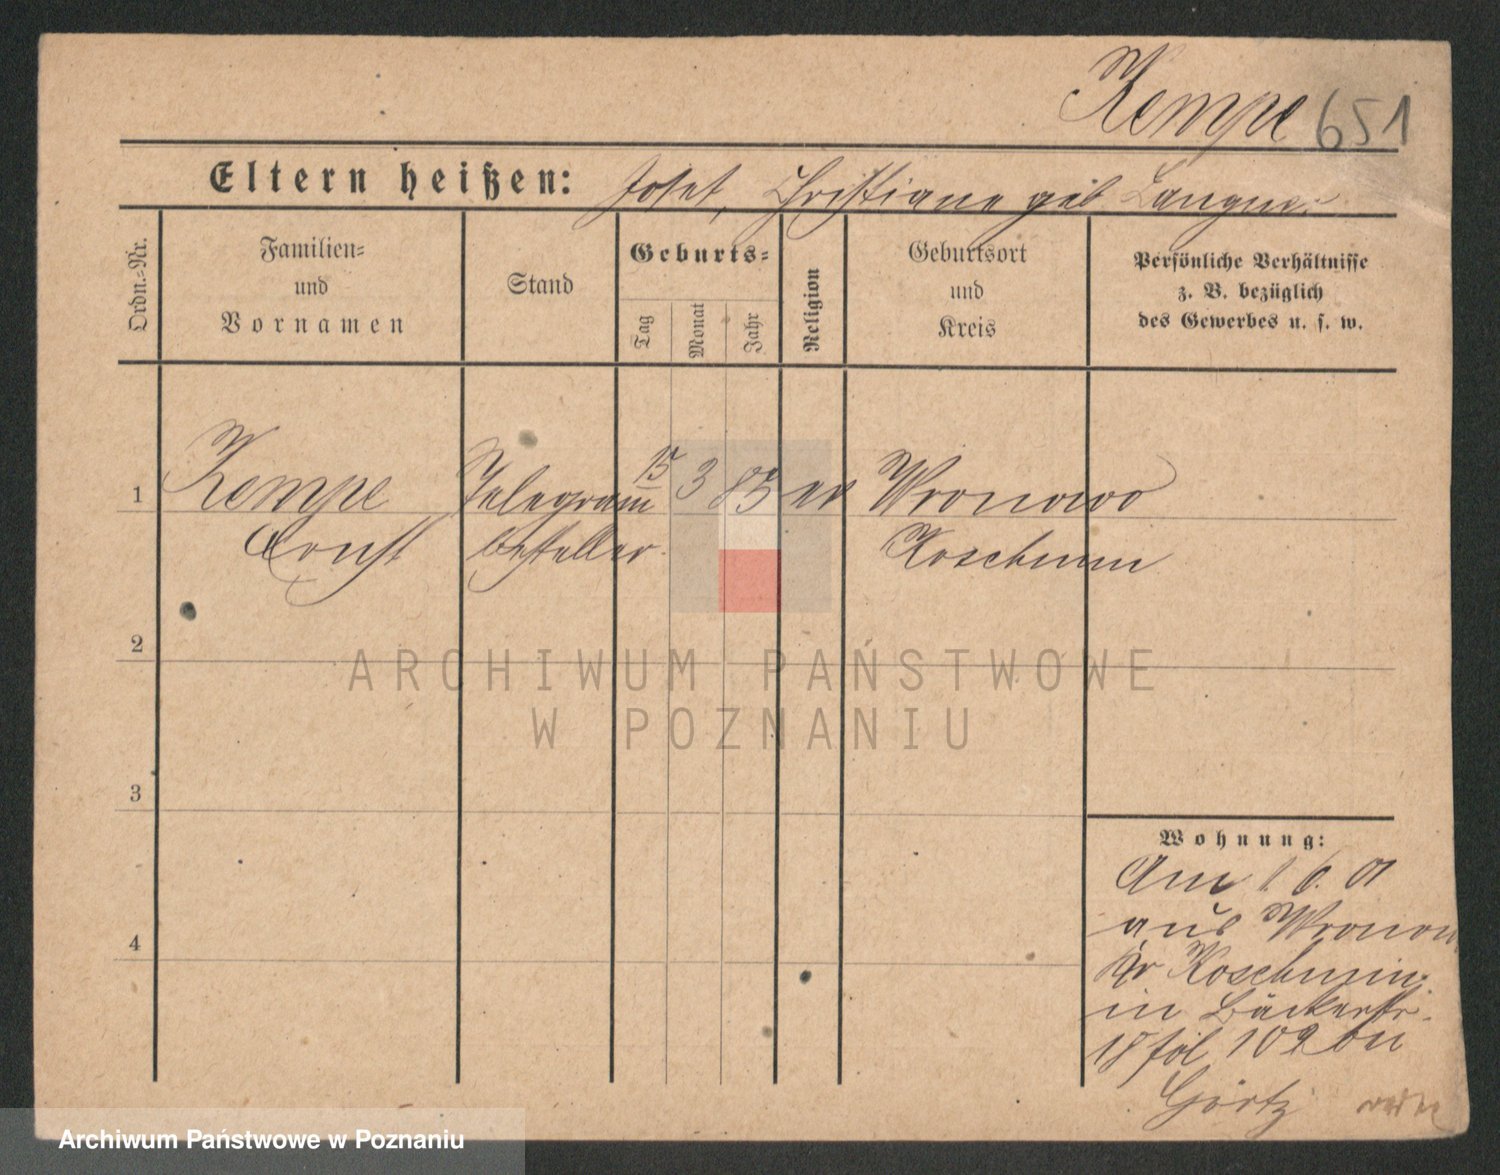 Kempe 651
Eltern heißen: Josef, Christiane geb Langner
Ordn.=Nr.
Familien=
und
Vornamen
Stand
Geburts=
Tag
Monat
Jahr
Religion
Geburtsort
und
Kreis
Persönliche Verhältnisse
z. B. bezüglich
des Gewerbes u. s. w.
1
Kempe
Ernst
Telegram
besteller
15 3 85 ev
Wronowo
Koschmin
2
3
4
ARCHIWUM PAŃSTWOWE
W POZNANIU
Wohnung:
Am 1. 6. 01
aus Wronow
Kr Koschmin
in Bäckerstr.
18 fol 109 bei
Görtz
Archiwum Państwowe w Poznaniu